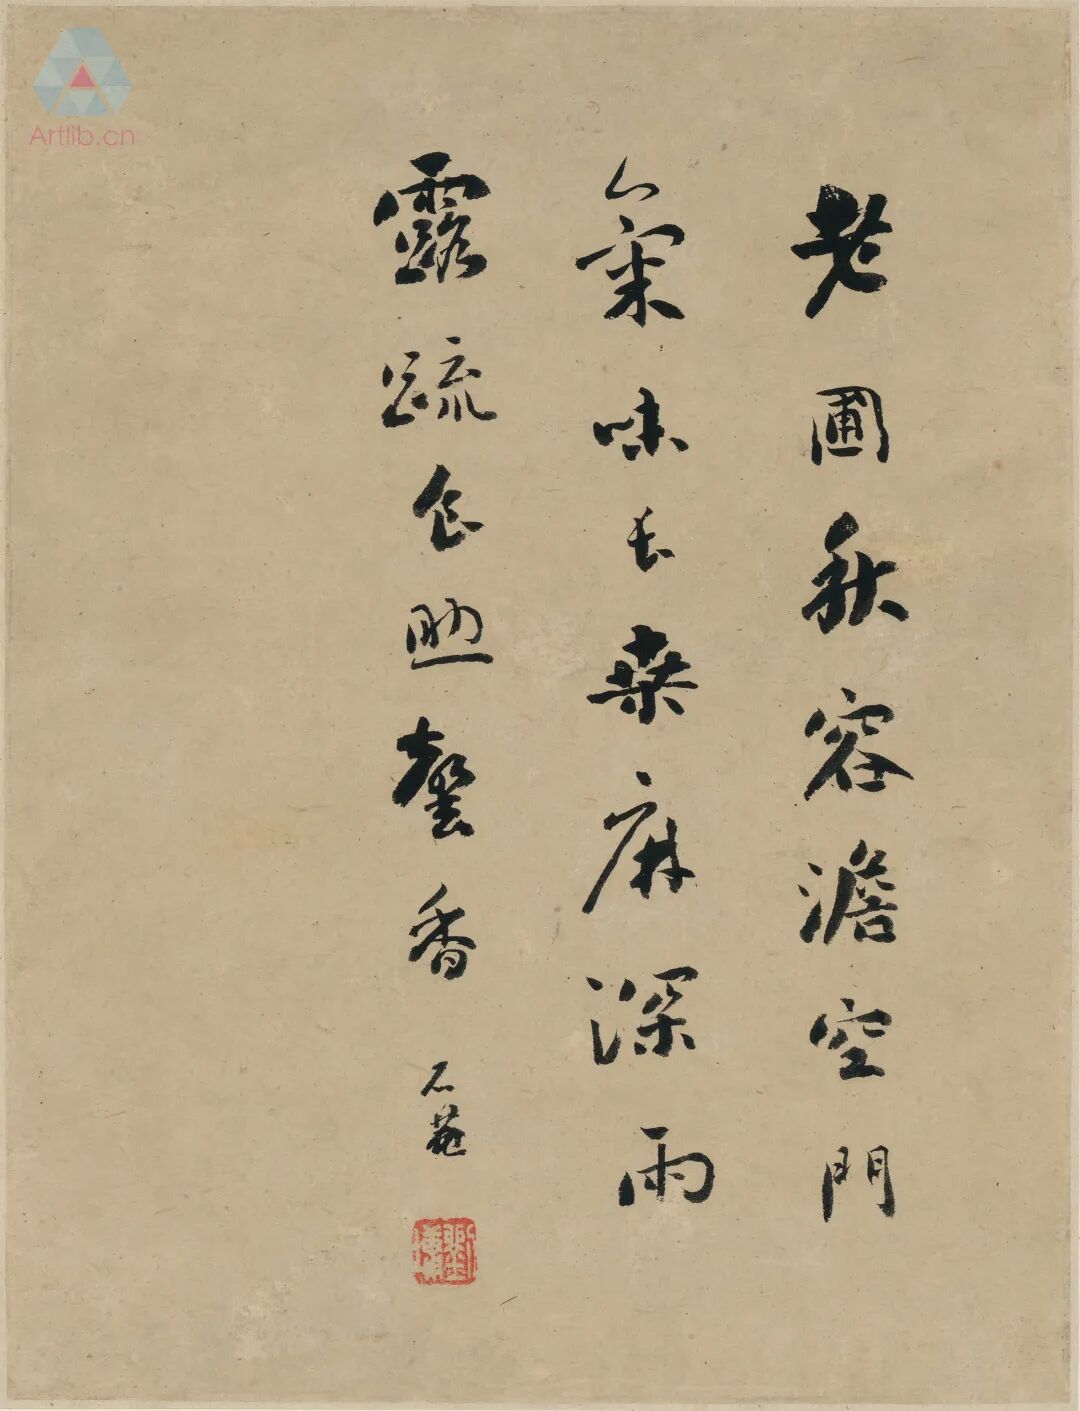 老圃秋容澹空門
氣味長桑麻深雨
露䟽食助馨香
石菴
劉墉
Artlib.cn